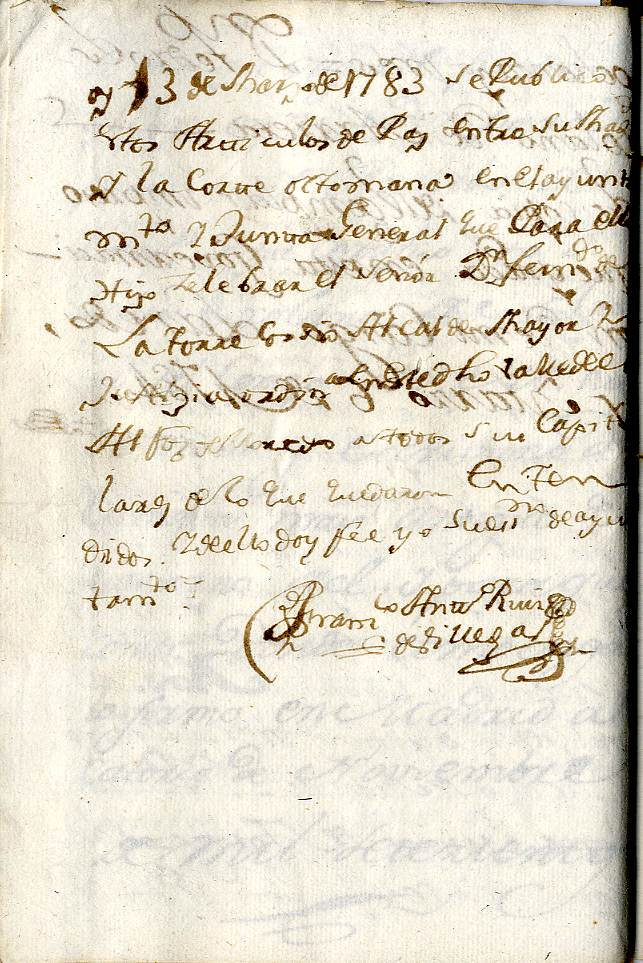 oy 13 de Marzo de 1783 se Publicó
estos Articulos de Paz entre su Mag
y la Corte ottomana en el ayunta
mto y Junta General que Para ello
Hizo zelebrar el señor Dn Ferndo de
La Torre Alcalde Mayor y
Justizia ordin de
Alfoz a todos sus Capitu
lares de lo que quedaron Enten
didos. y de ello doy fee yo su essno de ayun
tamto
Franco Antto Ruiz
de Villegas